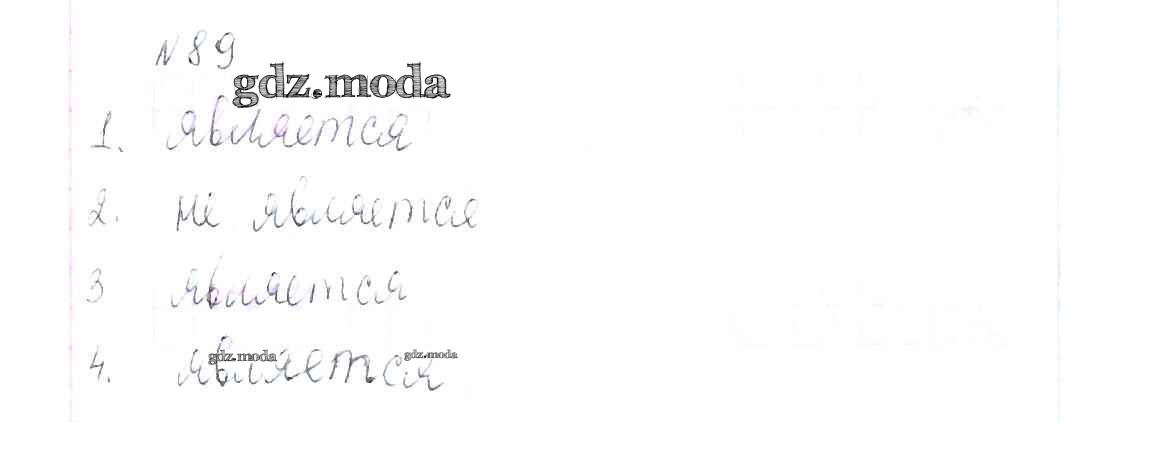 N 89
gdz.moda
1. является
2. не является
3 является
4. является
gdz.moda gdz.moda